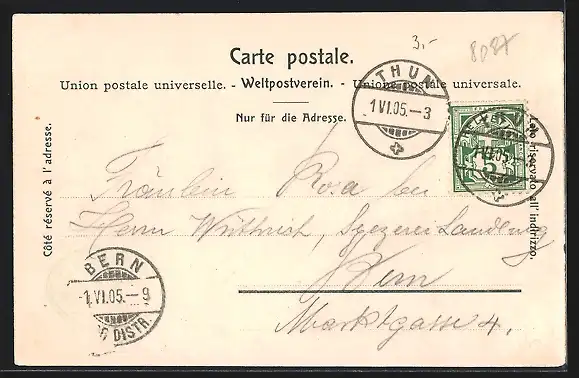 3,-
8087
Carte postale.
Union postale universelle. - Weltpostverein. - Unione postale universale.
Nur für die Adresse.
Côté réservé à l'adresse.
Lato riservato all'indirizzo.
THUN
1.VI.05.-3
THUN
1.VI.05.
HELVETIA
5
Fräulein Rosa bei
Herrn Wüthrich, Spezerei Landlung
Bern
Marktgasse 4.
BERN
-1.VI.05.-9
DISTR.